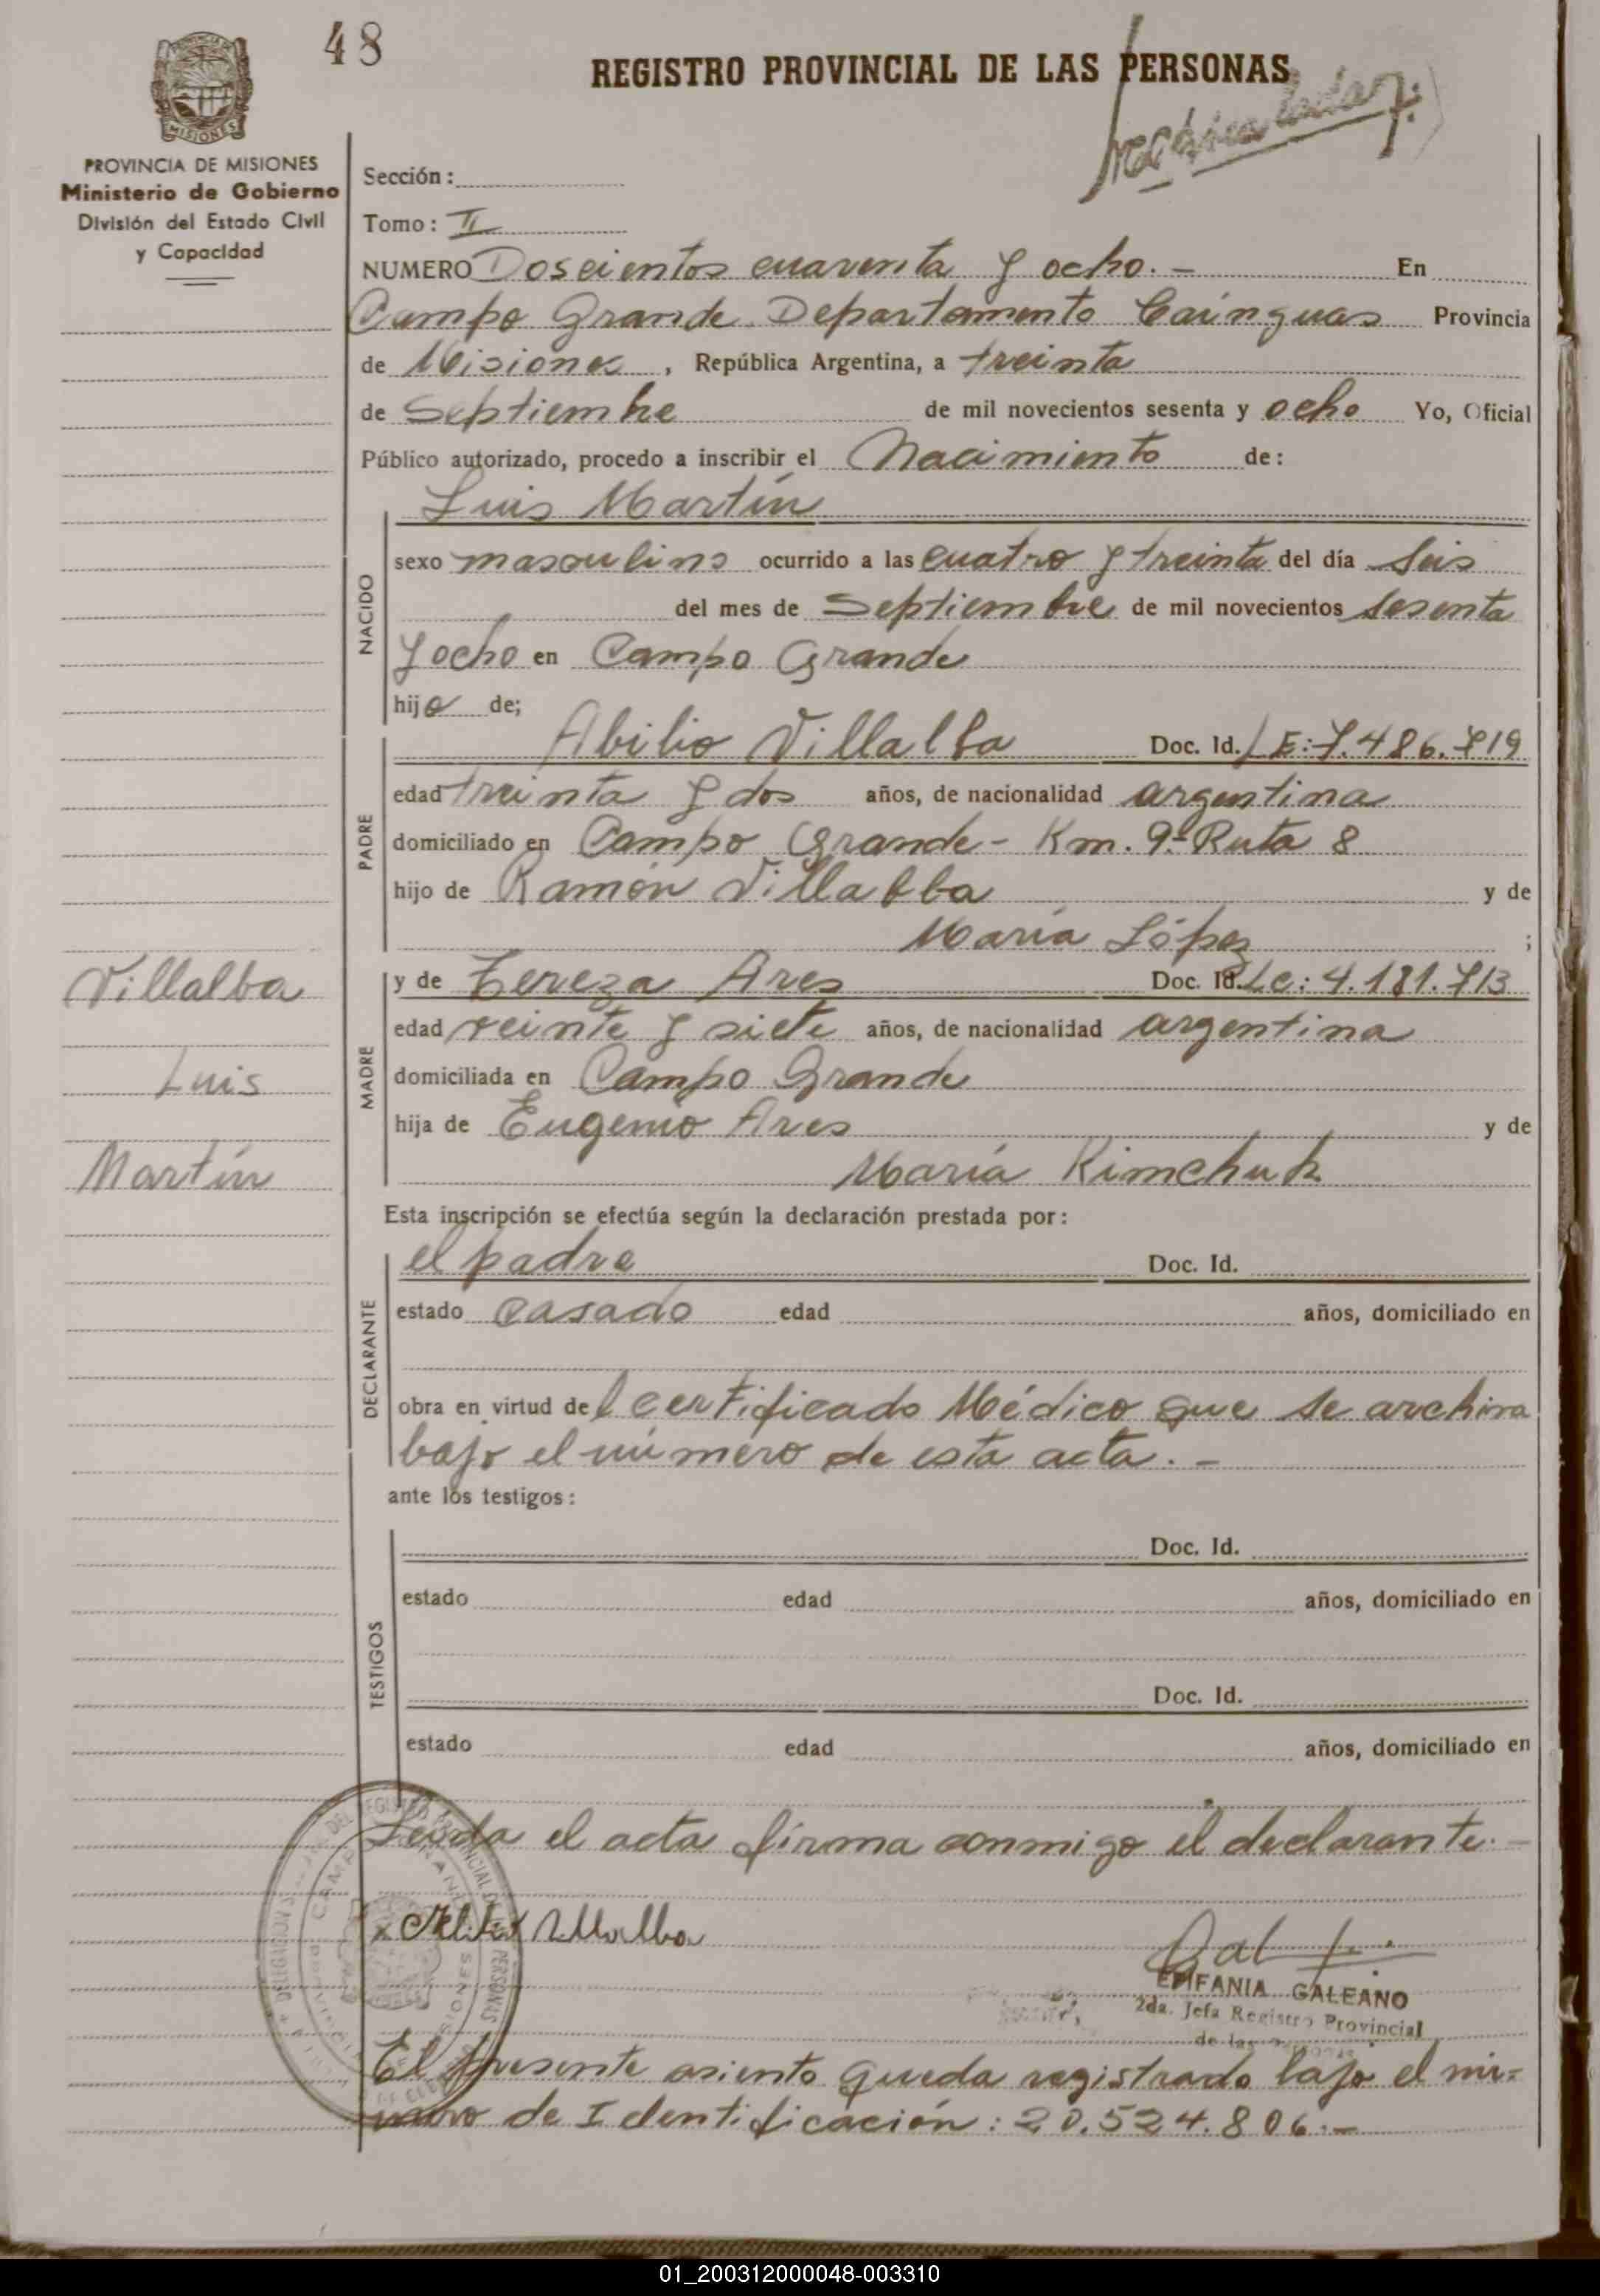 48
REGISTRO PROVINCIAL DE LAS PERSONAS
MISIONES
PROVINCIA DE MISIONES
Ministerio de Gobierno
División del Estado Civil
y Capacidad
Sección :
Tomo : II
NUMERO Doscientos cuarenta y ocho. - En
Campo Grande Departamento Cainguas Provincia
de Misiones , República Argentina, a treinta
de Septiembre de mil novecientos sesenta y ocho Yo, Oficial
Público autorizado, procedo a inscribir el Nacimiento de:
Luis Martín
NACIDO
sexo masculino ocurrido a las cuatro y treinta del día Seis
del mes de Septiembre de mil novecientos sesenta
y ocho en Campo Grande
hijo de;
PADRE
Abilio Villalba Doc. Id. LE: 7.486.719
edad treinta y dos años, de nacionalidad argentina
domiciliado en Campo Grande - Km. 9 - Ruta 8
hijo de Ramón Villalba y de
María López ;
Villalba
Luis
Martín
MADRE
y de Tereza Ares Doc. Id. Lc: 4.181.713
edad veinte y siete años, de nacionalidad argentina
domiciliada en Campo Grande
hija de Eugenio Ares y de
María Kimchuk
Esta inscripción se efectúa según la declaración prestada por :
DECLARANTE
el padre Doc. Id.
estado casado edad años, domiciliado en
obra en virtud del certificado Médico que se archiva
bajo el número de esta acta. -
ante los testigos :
TESTIGOS
Doc. Id.
estado edad años, domiciliado en
Doc. Id.
estado edad años, domiciliado en
Leída el acta firma conmigo el declarante. -
Villalba
EPIFANIA GALEANO
2da. Jefa Registro Provincial
de las
El presente asiento queda registrado bajo el nú-
mero de Identificación : 20.524.806.-
01_200312000048-003310